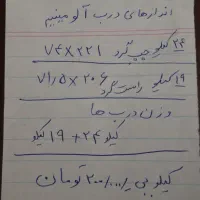 اندازهای درب آلومینیم
۲۴ کیلو چپ گرد ۷۴×۲۲۱
۱۹ کیلو راست گرد ۷۱/۵×۲۰۶
وزن درب ها
۲۴+۱۹ کیلو کیلو
کیلو یی ۲۰۰/۰۰۰ تومان